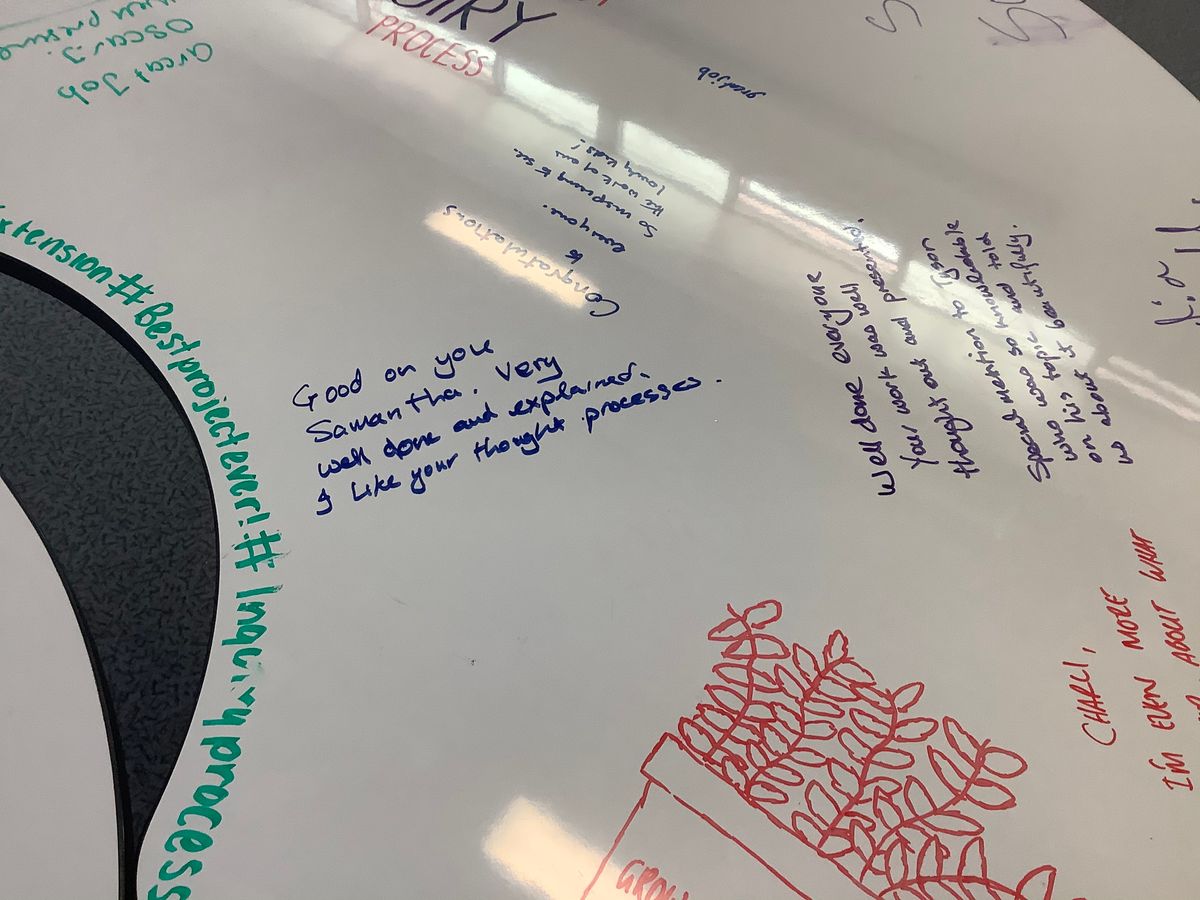 PROCESS
Great Job
Oscar :)
well
great job
Congratulations
to
everyone.
So inspiring to see
the work of our
lovely kids!
xtension#Bestprojectever!#Inquiryprocess
Good on you
Samantha. Very
well done and explained.
I like your thought processes.
Well done everyone
Your work was well
thought out and presented.
Special mention to Tyson
who was so knowledgable
on his topic and told
us about it beautifully.
CHARLI,
I'M EVEN MORE
ABOUT WHAT